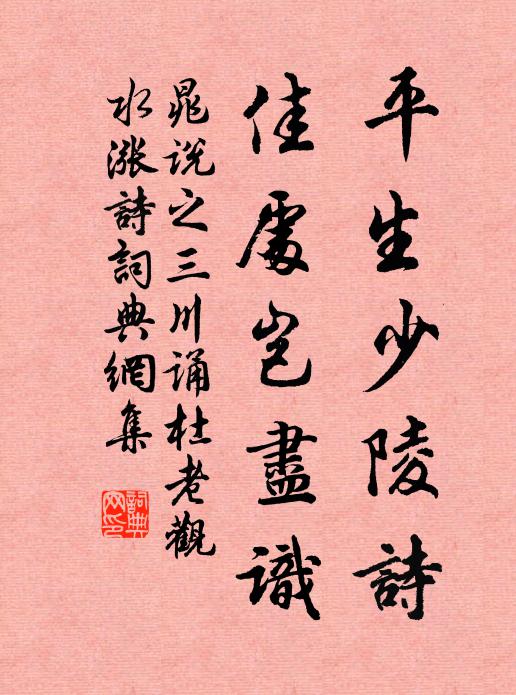 平生少陵詩
佳處豈盡識
晁說之三川誦杜老觀
水漲詩詞典網集
詞典网印